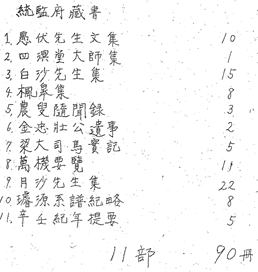 統監府藏書
1. 愚伏先生文集 10
2. 四溟堂大師集 1
3. 白沙先生集 15
4. 楓皐集 8
5. 農叟隨聞錄 3
6. 金忠壯公遺事 2
7. 梁大司馬實記 5
8. 萬機要覽 11
9. 月沙先生集 22
10. 璿源系譜紀略 8
11. 辛壬紀年提要 5
11部 90冊